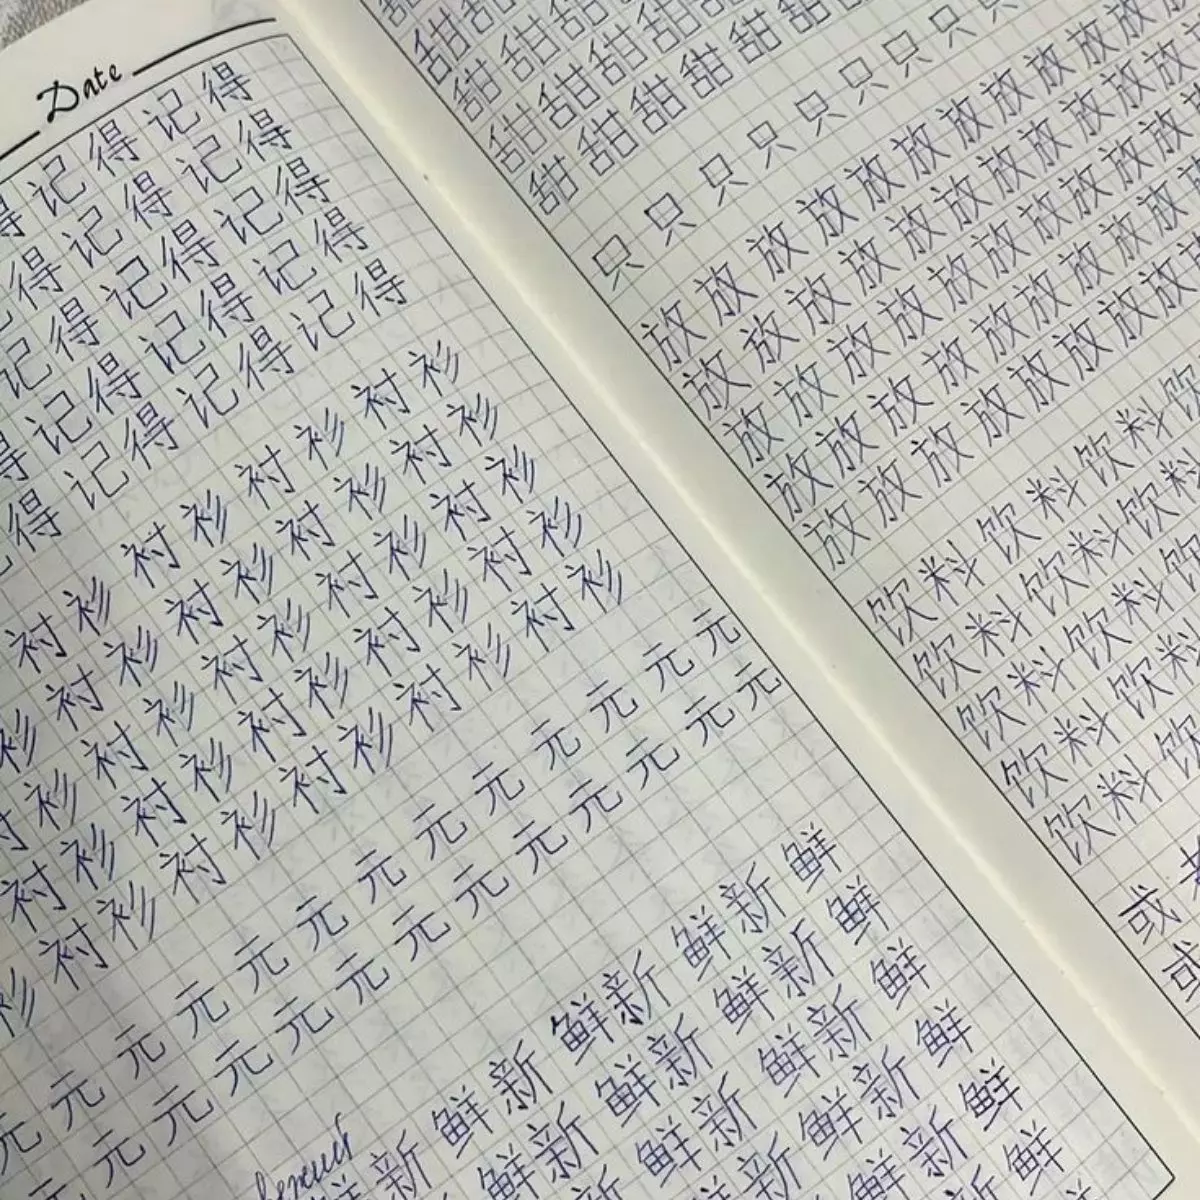 Date
得 记 得 记 得
得 记 得 记 得
记 得 记 得 记 得
得 记 得 记 得 记 得
得 记 得 记 得 记 得
衬 衫 衬 衫 衬 衫 衬 衫
衫 衬 衫 衬 衫 衬 衫 衬 衫
衬 衫 衬 衫 衬 衫 衬 衫 衬 衫
衬 衫 衬 衫 衬 衫 衬 衫 衬 衫
衫 衬 衫 衬 衫 衬 衫 衬 衫 衬 衫
元 元 元 元 元 元 元 元 元 元 元 元 元
元 元 元 元 元 元 元 元 元 元 元 元
新 鲜 新 鲜 新 鲜 新 鲜
鲜 新 鲜 新 鲜 新 鲜
鲜 新 鲜 新 鲜
新 鲜 新 鲜
新 鲜
鲜
甜 甜 甜 甜 甜
甜 甜 甜 甜 甜 甜
甜 甜 甜 甜 甜 甜
甜 甜 甜 甜 甜 甜
只 只 只 只 只 只 只 只
放 放 放 放 放 放 放 放 放 放
放 放 放 放 放 放 放 放 放 放
放 放 放 放 放 放 放 放 放
放 放 放 放 放 放 放 放 放
放 放 放 放 放 放 放 放 放
饮 料 饮 料 饮 料 饮
饮 料 饮 料 饮 料
饮 料 饮 料 饮
饮 料 饮 料
饮 料 饮
或
或